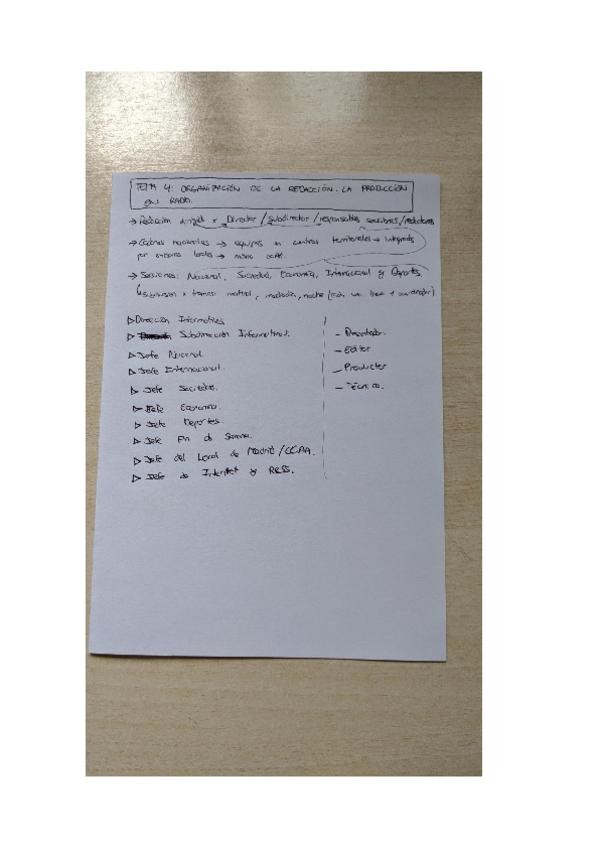 TEMA 4: ORGANIZACIÓN DE LA REDACCIÓN. LA PRODUCCIÓN
EN RADIO.
→ Redacción x Director / subdirector / responsables secciones / redactores
→ Cadenas nacionales → equipos en centros territoriales → integrados
por emisoras locales →
→ Secciones: Nacional, Sociedad, Economía, Internacional y Deportes.
x tramos: matinal, mediodía, noche
▷ Dirección Informativos
▷ Subdirección Informativos.
▷ Jefe Nacional.
▷ Jefe Internacional.
▷ Jefe Sociedad.
▷ Jefe Economía.
▷ Jefe Deportes.
▷ Jefe Fin de Semana.
▷ Jefe del Local de Madrid / CCAA.
▷ Jefe de Internet y RRSS.
- Presentador.
- Editor.
- Productor
- Técnico.